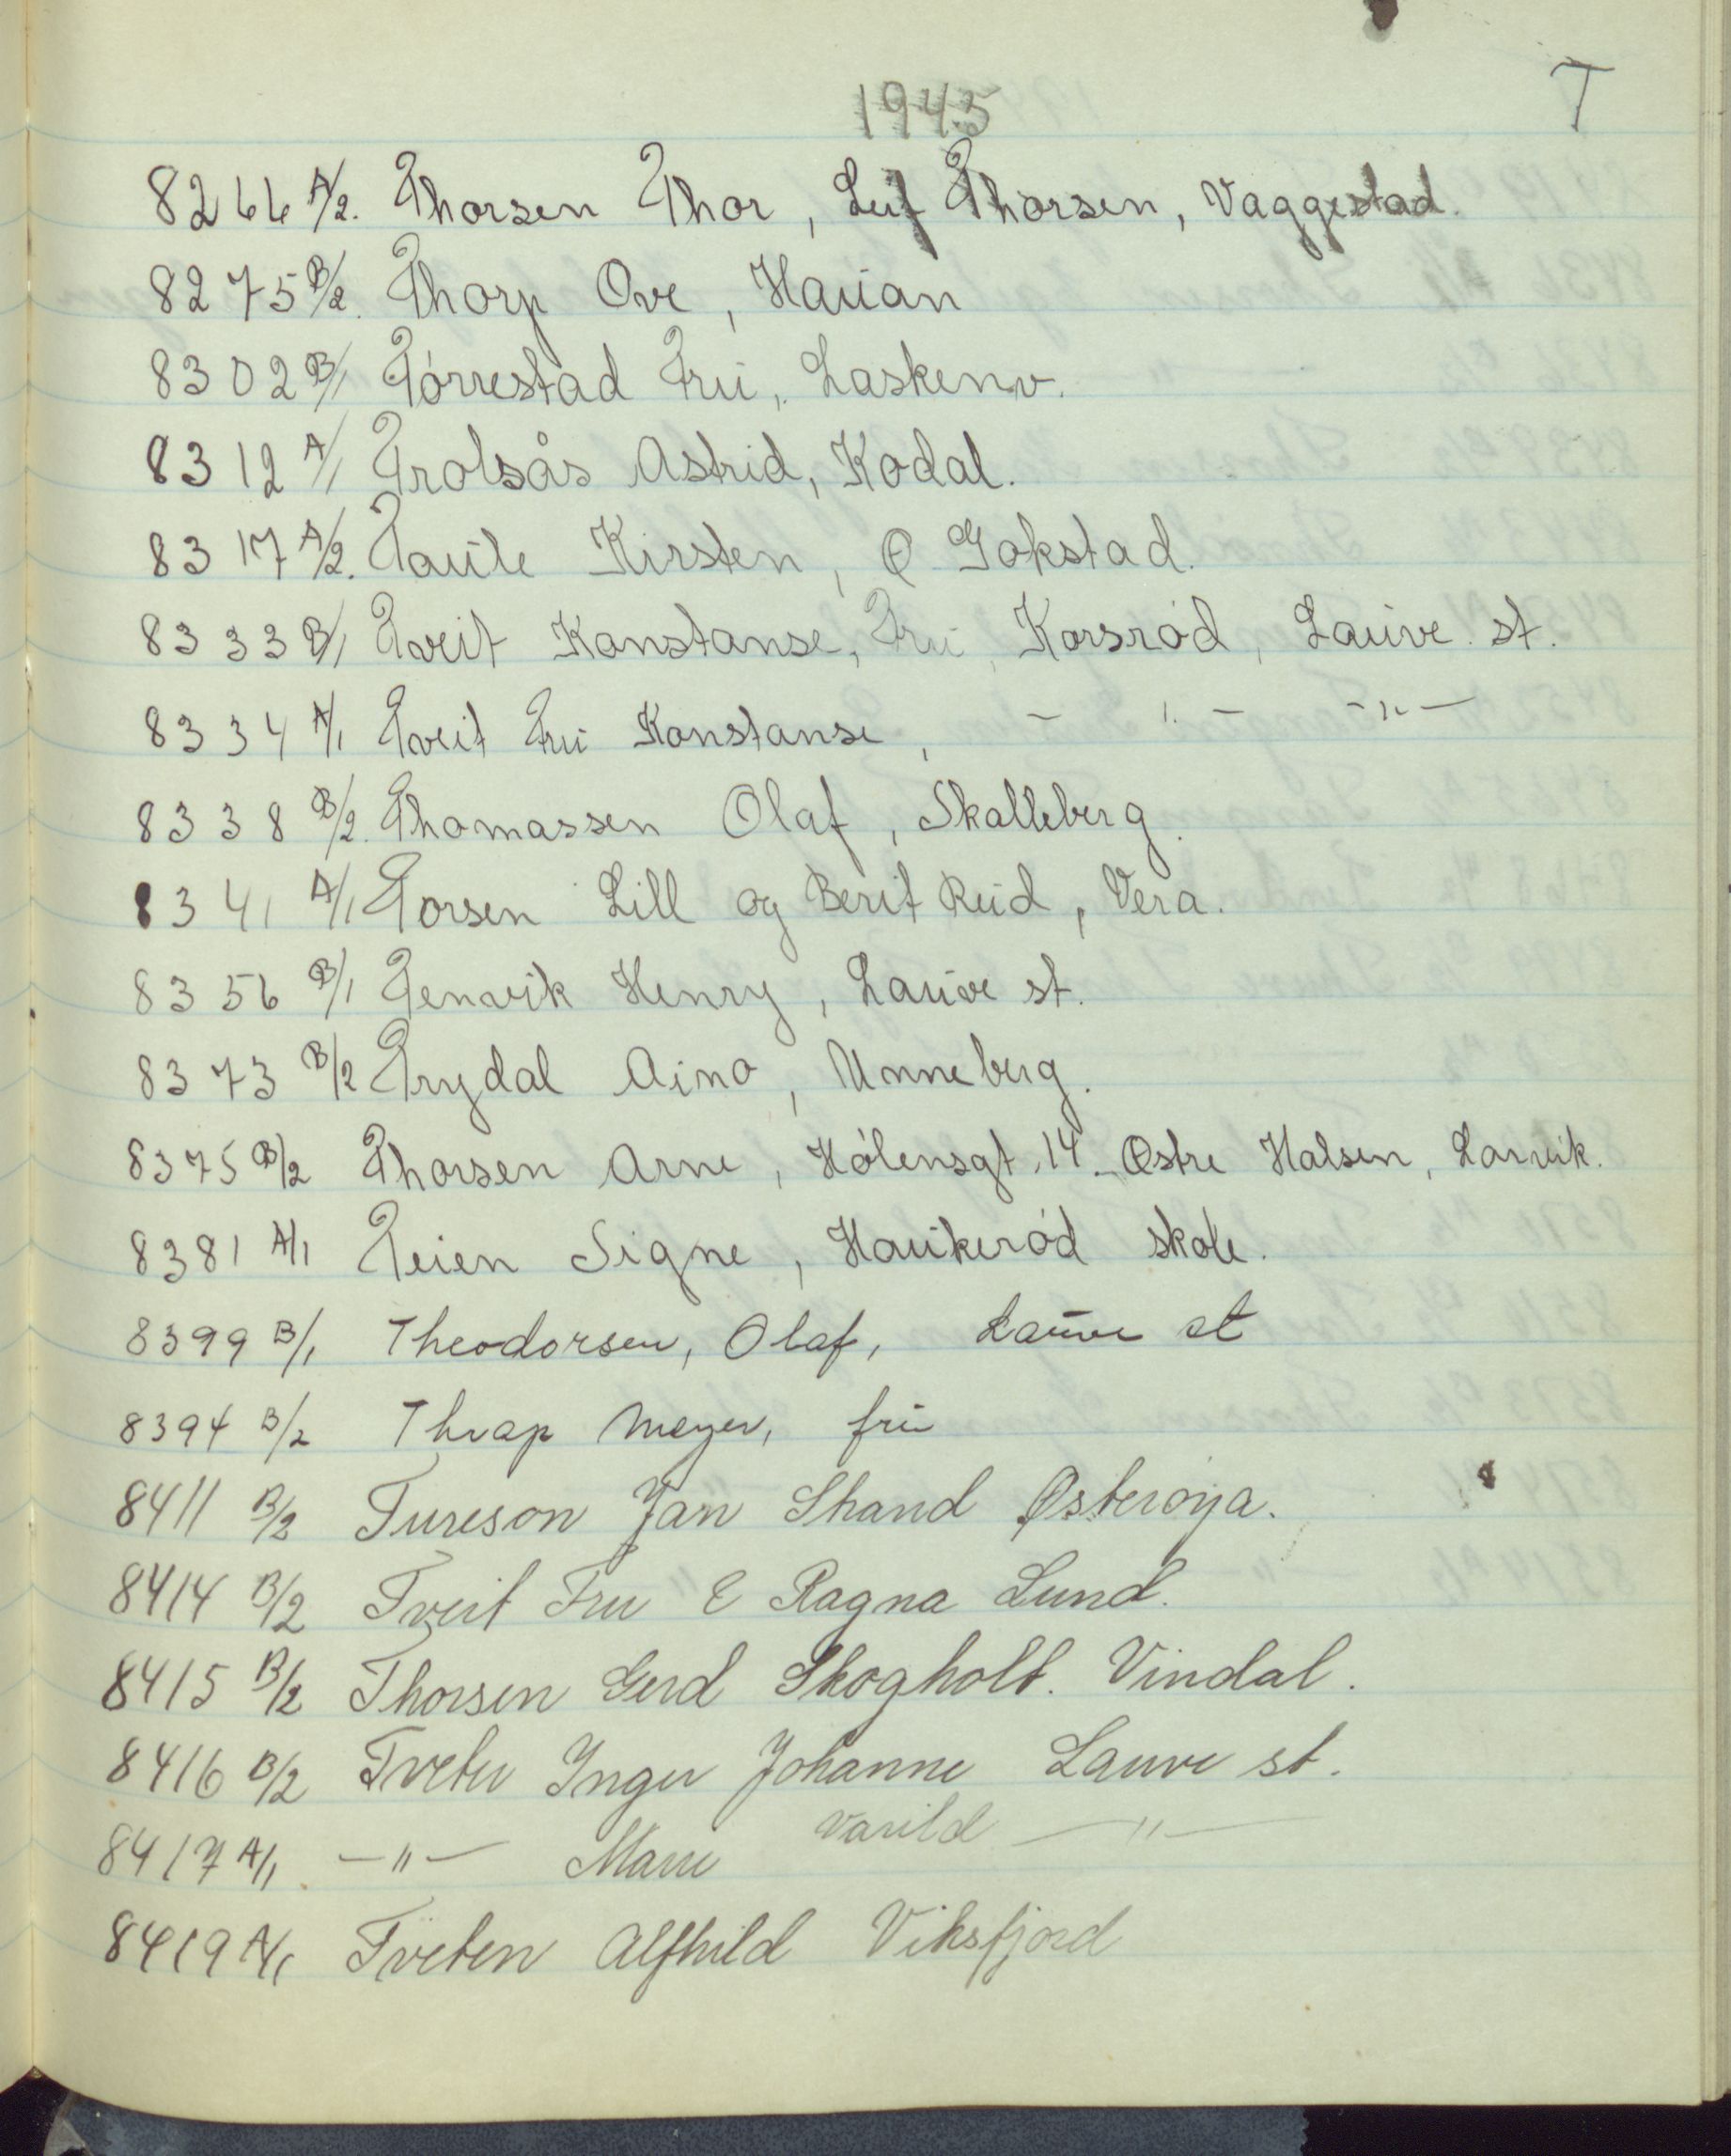 1945
T
8266 A/2. Thorsen Thor, Leif Thorsen, Vaggestad.
8275 B/2. Thorp Ove, Haúan
8302 B/1 Tórrestad Frú, Laskenv.
8312 A/1 Trolsås Astrid, Kodal.
8317 A/2. Taúle Kirsten, Ø Gokstad.
8333 B/1 Tveit Konstanse, Frú, Korsród, Laúve st.
8334 A/1 Tveit Frú Konstanse, - " - - " -
8338 B/2. Thomassen Olaf, Skalleberg.
8341 A/1 Torsen Lill og Berit Rúd, Vera.
8356 B/1 Tenvik Henry, Laúve st.
8373 B/2 Trydal Aino, Unneberg.
8375 B/2 Thorsen Arne, Hólensgt. 14. Østre Halsen, Larvik.
8381 A/1 Teien Signe, Haúkeród skole.
8399 B/1 Theodorsen, Olaf, Laúve st
8394 B/2 Thrap Meyer, frú
8411 B/2 Tureson Jan Strand Østerøya.
8414 B/2 Tveit Fru E Ragna Lund.
8415 B/2 Thorsen Gerd Skogholt. Vindal.
8416 B/2 Tveter Inger Johanne Lauve st.
8417 A/1 - " - Marie Varild - " -
8419 A/1 Tveten Alfhild Viksfjord